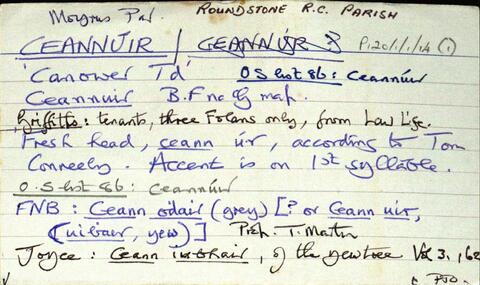 Moyrus Par. ROUNDSTONE R.C. PARISH
CEANNÚIR / CEANNÚR ? P120/1/1/14 (1)
'Canower Td' OS list 86: Ceannúir
Ceannuir B.F na G map.
Griffiths: tenants, three Folans only, from Law Life.
Fresh head, ceann úr, according to Tom
Conneely. Accent is on 1st syllable.
O.S list 86: Ceannúir
FNB: Ceann odair (grey) [? or Ceann uir,
(iubair, yew)] Pish. T. Martin
Joyce: Ceann iubhair, of the yewtree Vol 3, 162
PTO.